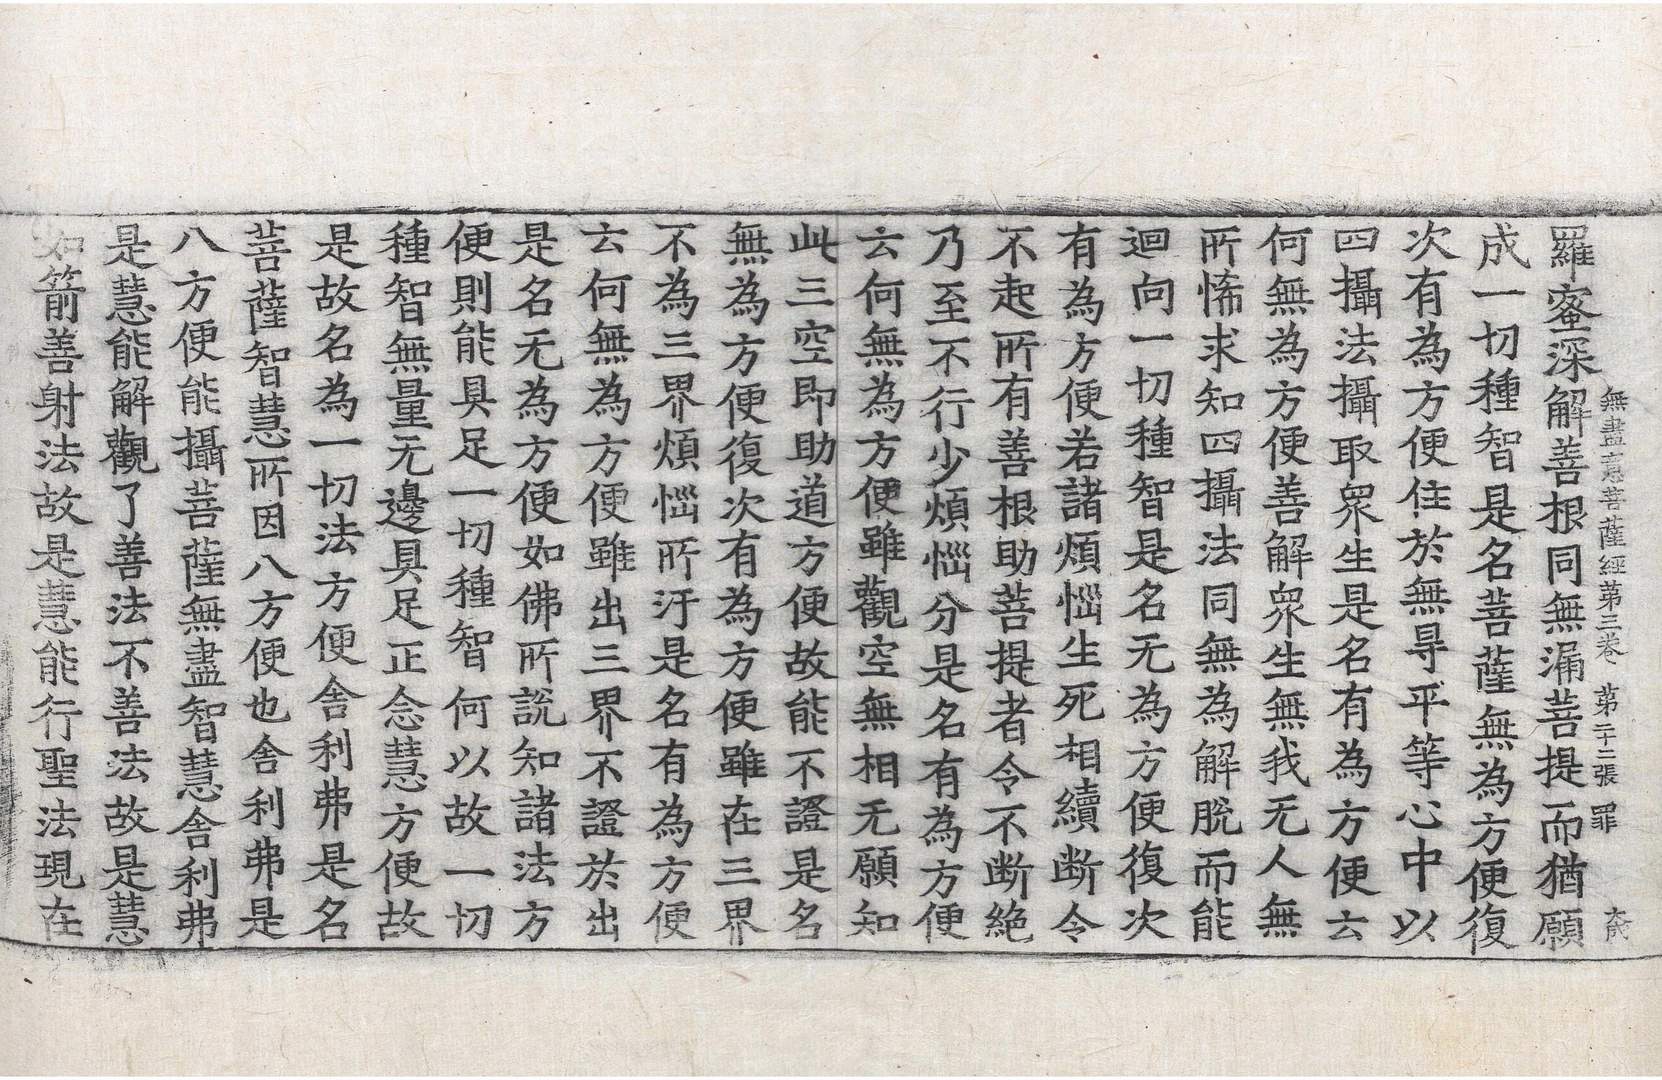 無盡意菩薩經苐三卷 苐二十二張 罪
羅蜜深解善根同無漏菩提而猶願
成一切種智是名菩薩無為方便復
次有為方便住於無㝵平等心中以
四攝法攝取衆生是名有為方便云
何無為方便善解衆生無我无人無
所悕求知四攝法同無為解脫而能
迴向一切種智是名无為方便復次
有為方便若諸煩惱生死相續断令
不起所有善根助菩提者令不断絶
乃至不行少煩惱分是名有為方便
云何無為方便雖觀空無相无願知
此三空即助道方便故能不證是名
無為方便復次有為方便雖在三界
不為三界煩惱所汙是名有為方便
云何無為方便雖出三界不證於出
是名无為方便如佛所說知諸法方
便則能具足一切種智何以故一切
種智無量无邊具足正念慧方便故
是故名為一切法方便舍利弗是名
菩薩智慧所因八方便也舍利弗是
八方便能攝菩薩無盡智慧舍利弗
是慧能解觀了善法不善法故是慧
如箭善射法故是慧能行聖法現在